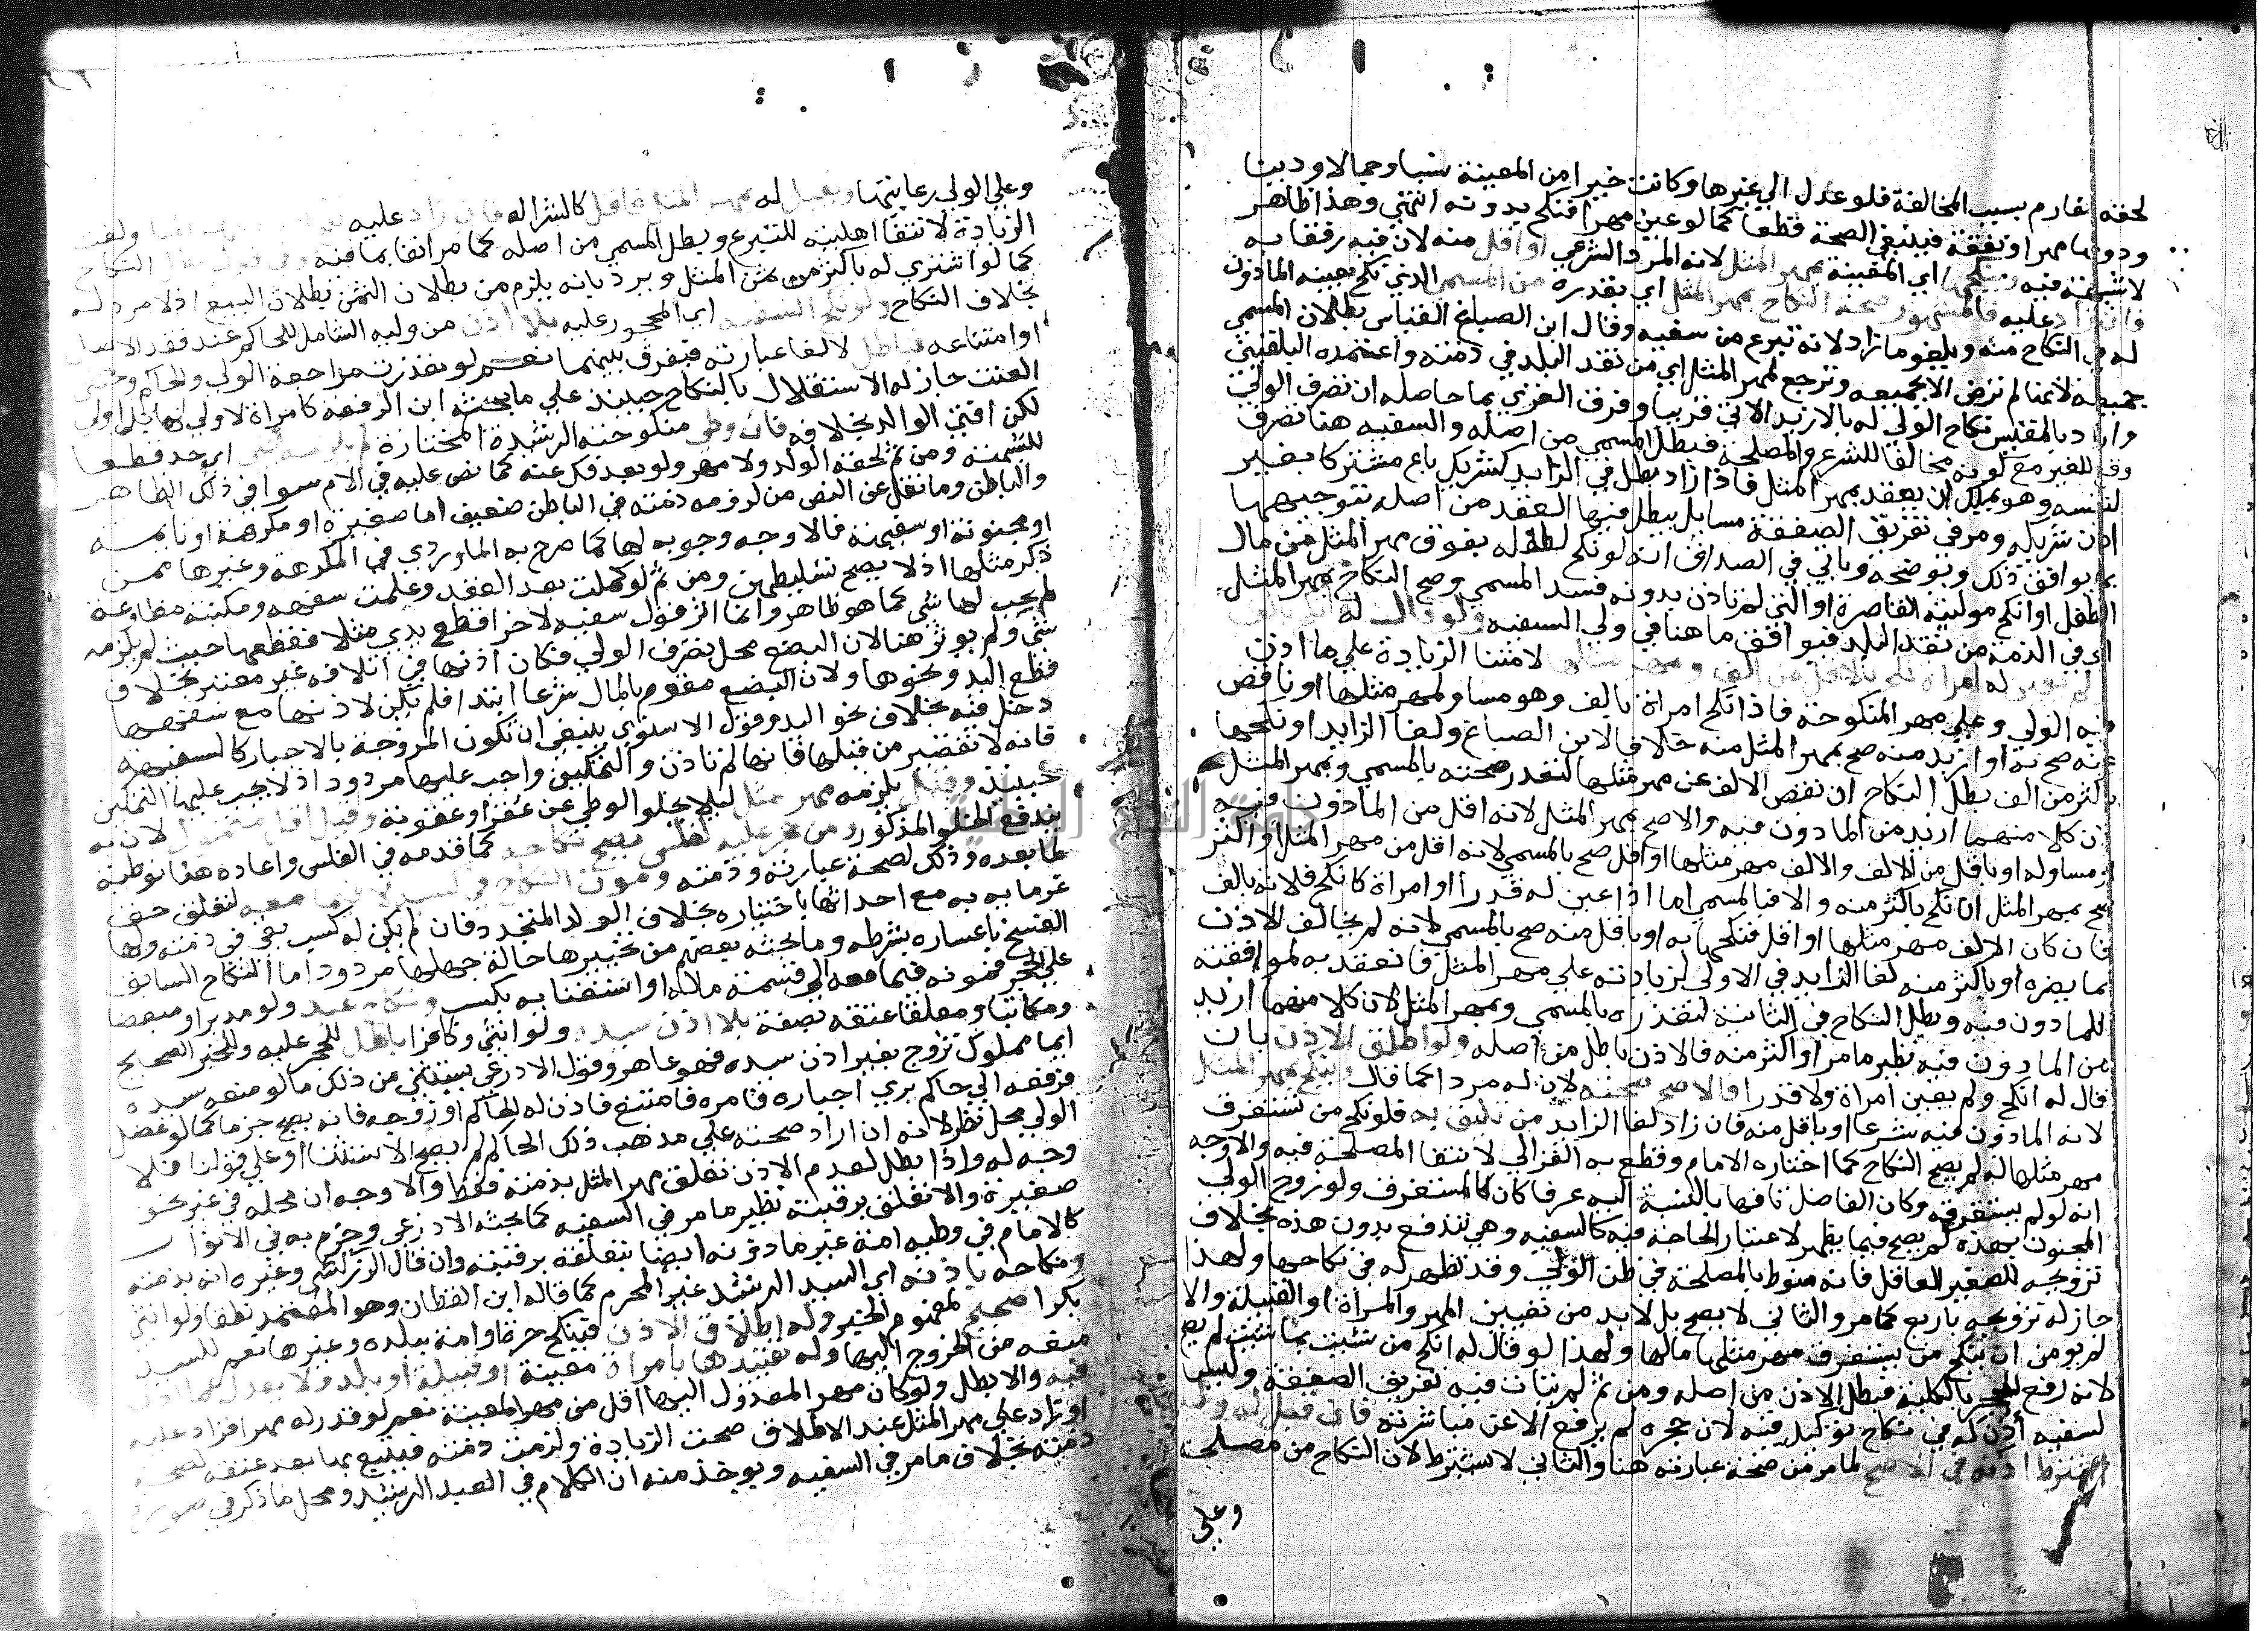 لحقه تفارم بسبب المخالفة فلو عدل الي غيرها وكانت خيرا من المعينة نسبا وجمالا ودينا
ودونها مهرا ونفقة فينبغي الصحة قطعا كما لو عين مهرا فنكح بدونه انتهي وهذا ظاهر
لا شبهة فيه وينكحها اي المعينة بمهر المثل لانه المرد الشرعي او اقل منه لان فيه رفقا به
فان زاد عليه فالمشهور صحة النكاح بمهر المثل اي بقدره من المسمي الذي نكح بعينه الماذون
له في النكاح منه ويلغو ما زاد لانه تبرع من سفيه وقال ابن الصباغ القياس بطلان المسمي
جميعه لانها لم ترض الا بجميعه وترجع لمهر المثل اي من نقد البلد في ذمته واعتمده البلقيني
واراد بالمقيس نكاح الولي له بالازيد الاتي قريبا وفرق الغزي بما حاصله ان تصرف الولي
وقع للغير مع كونه مخالفا للشرع والمصلحة فبطل المسمي من اصله والسفيه هنا تصرف
لنفسه وهو يملك ان يعقد بمهر المثل فاذا زاد بطل في الزايد كشريك باع مشتركا بغير
اذن شريكه ومر في تفريق الصفقة مسايل يبطل فيها العقد من اصله بتوجيهها
بما يوافق ذلك ويوضحه وياتي في الصداق انه لو نكح لطفله بفوق مهر المثل من مال
الطفل او انكح موليته القاصرة او التي لم تاذن بدونه فسد المسمي وصح النكاح بمهر المثل
اي في الذمة من نقد البلد فيوافق ما هنا في ولي السفيه ولو قال له انكح بالف
ولم يعين له امراة نكح بالاقل من الف ومهر مثلها لامتناع الزيادة علي ما اذن
فيه الولي وعلي مهر المنكوحة فاذا نكح امراة بالف وهو مساو لمهر مثلها او ناقص
عنه صح به او ازيد منه صح بمهر المثل منه خلافا لابن الصباغ ولغا الزايد او نكحها
باكثر من الف بطل النكاح ان نقص الالف عن مهر مثلها لتعذر صحته بالمسمي وبمهر المثل
لان كلا منهما ازيد من الماذون فيه والا صح بمهر المثل لانه اقل من الماذون فيه
او مساو له او باقل من الالف والالف مهر مثلها او اقل صح بالمسمي لانه اقل من مهر المثل او اكثر
صح بمهر المثل ان نكح باكثر منه والا فبالمسمي اما اذا عين له قدرا وامراة كانكح فلانة بالف
فان كان الالف مهر مثلها او اقل فنكحها به او باقل منه صح بالمسمي لانه لم يخالف الاذن
بما يضره او باكثر منه لغا الزايد في الاولي لزيادته علي مهر المثل فانعقد به لموافقته
للماذون فيه وبطل النكاح في الثانية لتعذره بالمسمي وبمهر المثل لان كلا منهما ازيد
من الماذون فيه نظير ما مر او اكثر منه فالاذن باطل من اصله ولو اطلق الاذن بان
قال له انكح ولم يعين امراة ولا قدرا فالاصح صحته لان له مردا كما قال وينكح بمهر المثل
لانه الماذون فيه شرعا او باقل منه فان زاد لغا الزايد من تليق به فلو نكح من تستغرق
مهر مثلها ماله لم يصح النكاح كما اختاره الامام وقطع به الغزالي لانتفا المصلحة فيه والاوجه
انه لو لم يستغرقه وكان الفاضل تافها بالنسبة اليه عرفا كان كالمستغرق ولو زوج الولي
المجنون بهذه لم يصح فيما يظهر لاعتبار الحاجة فيه كالسفيه وهي تندفع بدون هذه بخلاف
تزويجه للصغير العاقل فانه منوط بالمصلحة في ظن الولي وقد تظهر له في نكاحها ولهذا
جاز له تزويجه باربع كما مر والثاني لا يصح بل لا بد من تعيين المهر والمراة او القبيلة والا
لم يومن ان ينكح من يستغرق مهر مثلها مالها ولهذا لو قال له انكح من شيت بما شيت لم يصح
لانه رفع للحجر بالكلية فبطل الاذن من اصله ومن ثم لم يتات فيه تفريق الصفقة وليس
لسفيه اذن له في نكاح توكيل فيه لان حجره لم يرفع الا عن مباشرته فان قبل له وليه
اشترط اذنه في الاصح لما مر من صحة عبارته هنا والثاني لا يشترط لان النكاح من مصلحته
وعلي
وعلي الولي رعايتها ويقبل له بمهر المثل فاقل كالشرا له فان زاد عليه
الزيادة لانتفا اهلية للتبرع وبطل المسمي من اصله كما مر انفا بما فيه وفي قول يبطل النكاح
كما لو اشتري له باكثر من ثمن المثل ويرد بانه يلزم من بطلان الثمن بطلان البيع اذ لا مرد له
بخلاف النكاح ولو نكح السفيه اي المحجور عليه بلا اذن من وليه الشامل للحاكم عند فقد الاصل
او امتناعه فباطل لالغا عبارته فيفرق بينهما نعم لو تعذرت مراجعة الولي والحاكم وخشي
العنت جاز له الاستقلال بالنكاح حينيذ علي ما بحثه ابن الرفعة كامراة لا ولي لها بل اولي
لكن افتي الوالد بخلافه فان وطي منكوحته الرشيدة المختارة لم يلزمه شي اي حد قطعا
للشبهة ومن ثم لحقه الولد ولا مهر ولو بعد فك عنه كما نص عليه في الام سوا في ذلك الظاهر
والباطن وما نقل عن النص من لزومه ذمته في الباطن ضعيف اما صغيرة او مكرهة او نايمة
او مجنونة او سفيهة فالاوجه وجوبه لها كما صرح به الماوردي في المكرهة وغيرها ممن
ذكر مثلها اذ لا يصح تسليطهن ومن ثم لو كملت بعد العقد وعلمت سفهه ومكنته مطاوعة
لم يجب لها شي كما هو ظاهر وانما اثر قول سفيه لاخر اقطع يدي مثلا فقطعها حيث لم يلزمه
شي ولم يوثر هنا لان البضع محل تصرف الولي فكان اذنها في اتلافه غير معتبر بخلاف
قطع اليد ونحوها ولان البضع مقوم بالمال شرعا ابتدا فلم يكن لاذنها مع سفهها
دخل فيه بخلاف نحو اليد وقول الاسنوي ينبغي ان تكون المزوجة بالاجبار كالسفيهة
فانه لا تقصير من قبلها فانها لم تاذن والتمكين واجب عليها مردود اذ لا يجب عليها التمكين
حينيذ وقيل يلزمه مهر مثل ليلا يخلو الوطي عن عقر او عقوبة وقيل اقل متمول لان به
يندفع الخلو المذكور ومن حجر عليه لفلس يصح نكاحه كما قدمه في الفلس واعاده هنا توطية
لما بعده وذلك لصحة عبارته وذمته ومون النكاح في كسبه لا فيما معه لتعلق حق
غرمايه به مع احداثها باختياره بخلاف الولد المتجدد فان لم يكن له كسب بقي في ذمته ولها
الفسخ باعساره بشرطه وما بحثه بعضهم من تخييرها حالة جهلها مردود اما النكاح السابق
علي الحجر فمونه فيما معه الي قسمة ماله او استغنا به بكسب ونكاح عبد ولو مدبرا ومبعضا
ومكاتبا ومعلقا عتقه بصفة بلا اذن سيده ولو انثي وكافرا باطل للحجر عليه وللخبر الصحيح
ايما مملوك تزوج بغير اذن سيده فهو عاهر وقول الاذرعي يستثني من ذلك ما لو منعه سيده
فرفعه الي حاكم يري اجباره فامره فامتنع فاذن له الحاكم او زوجه فانه يصح جزما كما لو عضل
الولي محل نظر لانه ان اراد صحته علي مذهب ذلك الحاكم لم يصح الاستثنا او علي قولنا فلا
وجه له واذا بطل لعدم الاذن تعلق مهر المثل بذمته فقط والاوجه ان محله في غير نحو
صغيرة والا تعلق برقبته نظير ما مر في السفيه كما بحثه الاذرعي وجزم به في الانوار
كالامام في وطيه امة غير ماذونه ايضا بتعلقه برقبته وان قال الزركشي وغيره انه بذمته
ونكاحه باذنه اي السيد الرشيد غير المحرم كما قاله ابن القطان وهو المعتمد نطقا ولو انثي
بكرا صحيح لمفهوم الخبر وله اطلاق الاذن فينكح حرة او امة ببلده وغيرها نعم للسيد
منعه من الخروج اليها وله تقييده بامراة معينة او قبيلة او بلد ولا يعدل عما اذن
فيه والا بطل ولو كان مهر المعدول اليها اقل من مهر المعينة نعم لو قدر له مهرا فزاد عليه
او زاد علي مهر المثل عند الاطلاق صحت الزيادة ولزمت ذمته فيتبع بها بعد عتقه لصحة
ذمته بخلاف ما مر في السفيه ويوخذ منه ان الكلام في العبد الرشيد ومحل ما ذكر في صورة